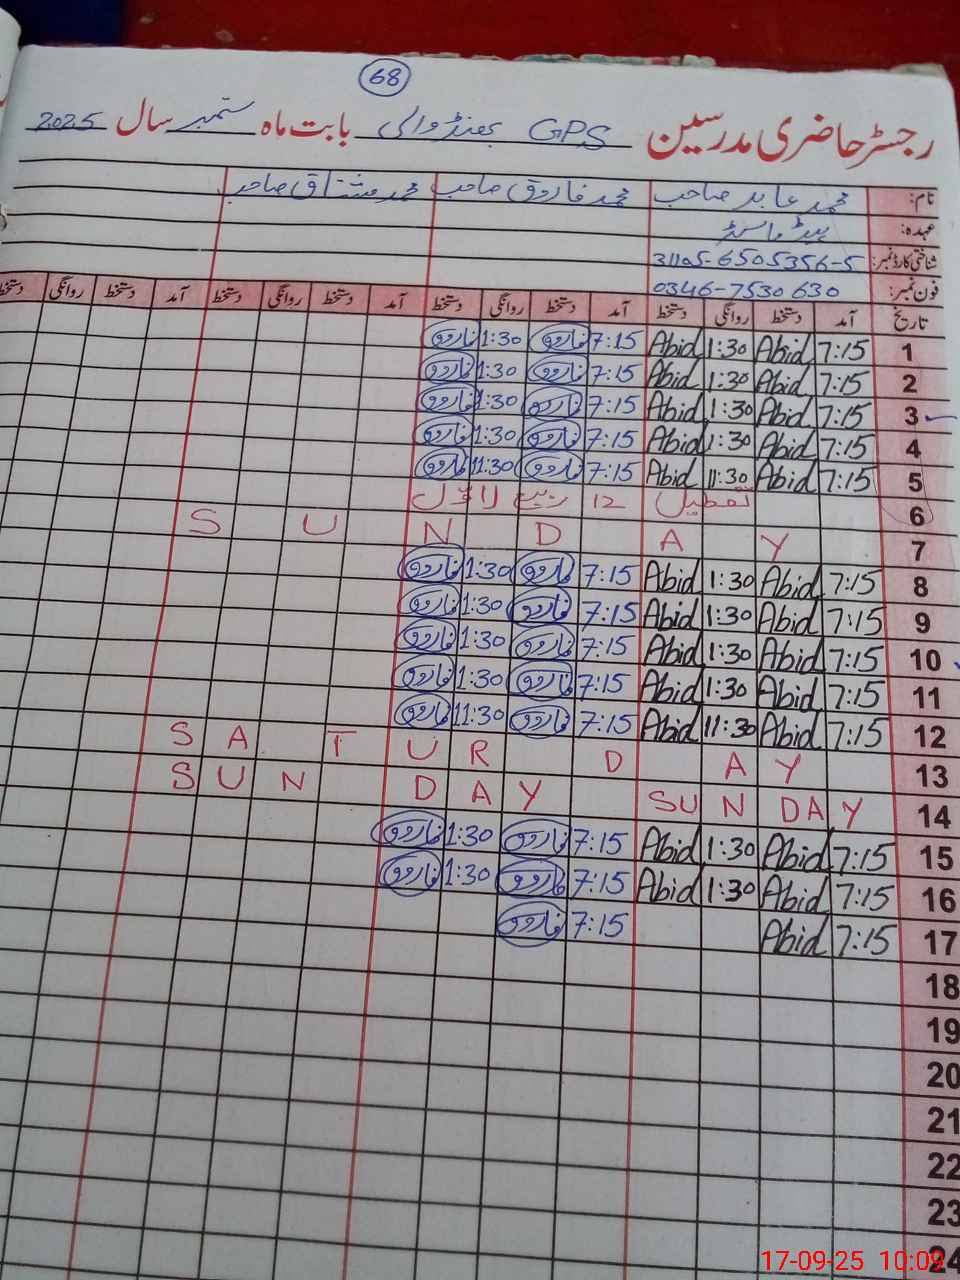 68
رجسٹر حاضری مدرسین GPS بھنڈوالی بابت ماہ ستمبر سال 2025
نام: محمد عابد صاحب محمد فاروق صاحب محمد مشتاق صاحب
عہدہ: ہیڈ ماسٹر
شناختی کارڈ نمبر: 31105-6505356-5
فون نمبر: 0346-7530630
تاریخ آمد دستخط روانگی دستخط آمد دستخط روانگی دستخط آمد دستخط روانگی دستخط آمد دستخط روانگی دستخط
1 7:15 Abid 1:30 Abid 7:15 فاروق 1:30 فاروق
2 7:15 Abid 1:30 Abid 7:15 فاروق 1:30 فاروق
3 7:15 Abid 1:30 Abid 7:15 فاروق 1:30 فاروق
4 7:15 Abid 1:30 Abid 7:15 فاروق 1:30 فاروق
5 7:15 Abid 11:30 Abid 7:15 فاروق 11:30 فاروق
6 تعطیل 12 ربیع الاوّل
7 S U N D A Y
8 7:15 Abid 1:30 Abid 7:15 فاروق 1:30 فاروق
9 7:15 Abid 1:30 Abid 7:15 فاروق 1:30 فاروق
10 7:15 Abid 1:30 Abid 7:15 فاروق 1:30 فاروق
11 7:15 Abid 1:30 Abid 7:15 فاروق 1:30 فاروق
12 7:15 Abid 11:30 Abid 7:15 فاروق 11:30 فاروق
13 S A T U R D A Y
14 S U N D A Y SUNDAY
15 7:15 Abid 1:30 Abid 7:15 فاروق 1:30 فاروق
16 7:15 Abid 1:30 Abid 7:15 فاروق 1:30 فاروق
17 7:15 Abid 7:15 فاروق
18
19
20
21
22
23
24
17-09-25 10:09